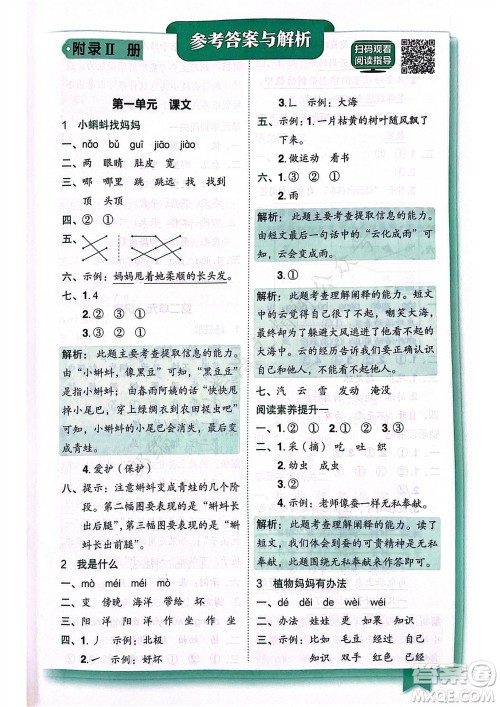 附录Ⅱ 册
参考答案与解析
扫码观看
阅读指导
第一单元 课文
1 小蝌蚪找妈妈
一、nǎo bǔ guī jiǎo jiāo
二、两 眼睛 肚皮 宽
三、哪 哪里 跳 跳远 找 找到
顶 头顶
四、② ① ①
五、
六、示例：妈妈甩着她柔顺的长头发。
七、1.4
2.③ ② ①
解析：此题主要考查提取信息的能力。
由“小蝌蚪，像黑豆”可知，“黑豆豆”
是指小蝌蚪；由春雨阿姨的话“快快甩
掉小尾巴，穿上绿绸衣到农田捉害虫
吧”可知，小蝌蚪甩掉小尾巴，穿上绿
绸衣后变成青蛙。
4.爱护（保护）
八、提示：注意蝌蚪变成青蛙的几个
阶段。第二幅图要表现的是“蝌蚪长
出后腿”。第三幅图要表现的是“蝌
蚪长出前腿”。
2 我是什么
一、mò méi méi mò
二、变 傍晚 海洋 带给 坏
三、阳 洋 阳 洋 作 坐 坐 作
四、1.丿 示例：北极
2.㇀ 示例：好坏
3.乚 示例：大海
五、示例：1.一片枯黄的树叶随风飘了
下来。
2.做运动 看书
六、1.③ ① ②
2.雨
解析：此题主要考查提取信息的能力。
由短文最后一句话中的“云化成雨”
可知，云会变成雨。
3.①
解析：此题考查理解阐释的能力。短文
中的云觉得自己了不起，嘲笑大海，
最后为了躲避大风逃进了他看不起的
大海。由云的经历告诉我们要正确认识
自己和他人，不要骄傲自大。
七、汽 云 雪 发动 淹没
阅读素养提升一
一、1.② ① ③ ②
二、1.采（摘） 吃 吐 织
2.幼虫 成虫
3.①
4.示例：老师像蚕一样无私奉献。
解析：此题考查理解阐释的能力。读了
短文，我们知道蚕的可贵精神是无私
奉献，此题围绕无私奉献来作答即可。
3 植物妈妈有办法
一、dé děi de de
二、办法 娃 更 如果 知识
三、示例：如 比如 毛豆 经过 自己
知识 双手 红色 已经
答案圈